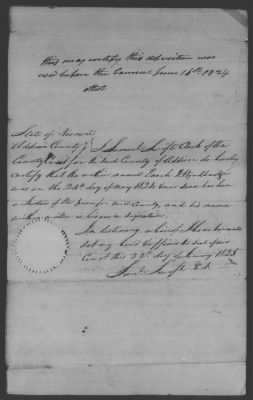 this may certify this deposition was
read before the Council June 16th 1824
attest
State of Vermont
Addison County } I Samuel Swift Clerk of the
County Court for the said County of Addison do hereby
certify that the within named Enoch D Woodbridge
was on the 24th day of May 1824 ever since has been
a Justice of the peace for said County, and his name
within written is his own signature.
In testimony whereof I have hereunto
set my hand & affixed the seal of said
Court this 22d day of January 1825
Saml Swift Clk